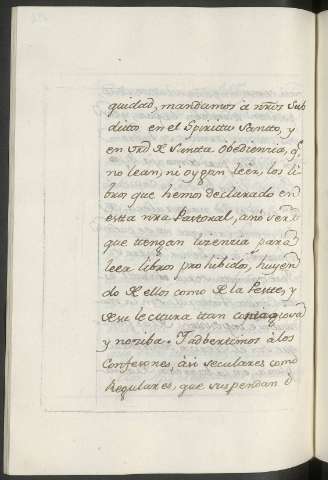 guidad, mandamos à nros sub
ditos en el Spiritu Santto, y
en vrd de Santta Obediencia, q.e
no lean, ni oygan leèr, los li
bros que hemos declarado en
estta nra Pastoral, à no ser
que ttengan licencia para
leer libros prohibidos, huyen
do de ellos como de la Peste, y
de su lectura ttan contagiosa
y nociba. Y adbertimos à los
Confesores, àsi seculares como
Regulares, que suspendan